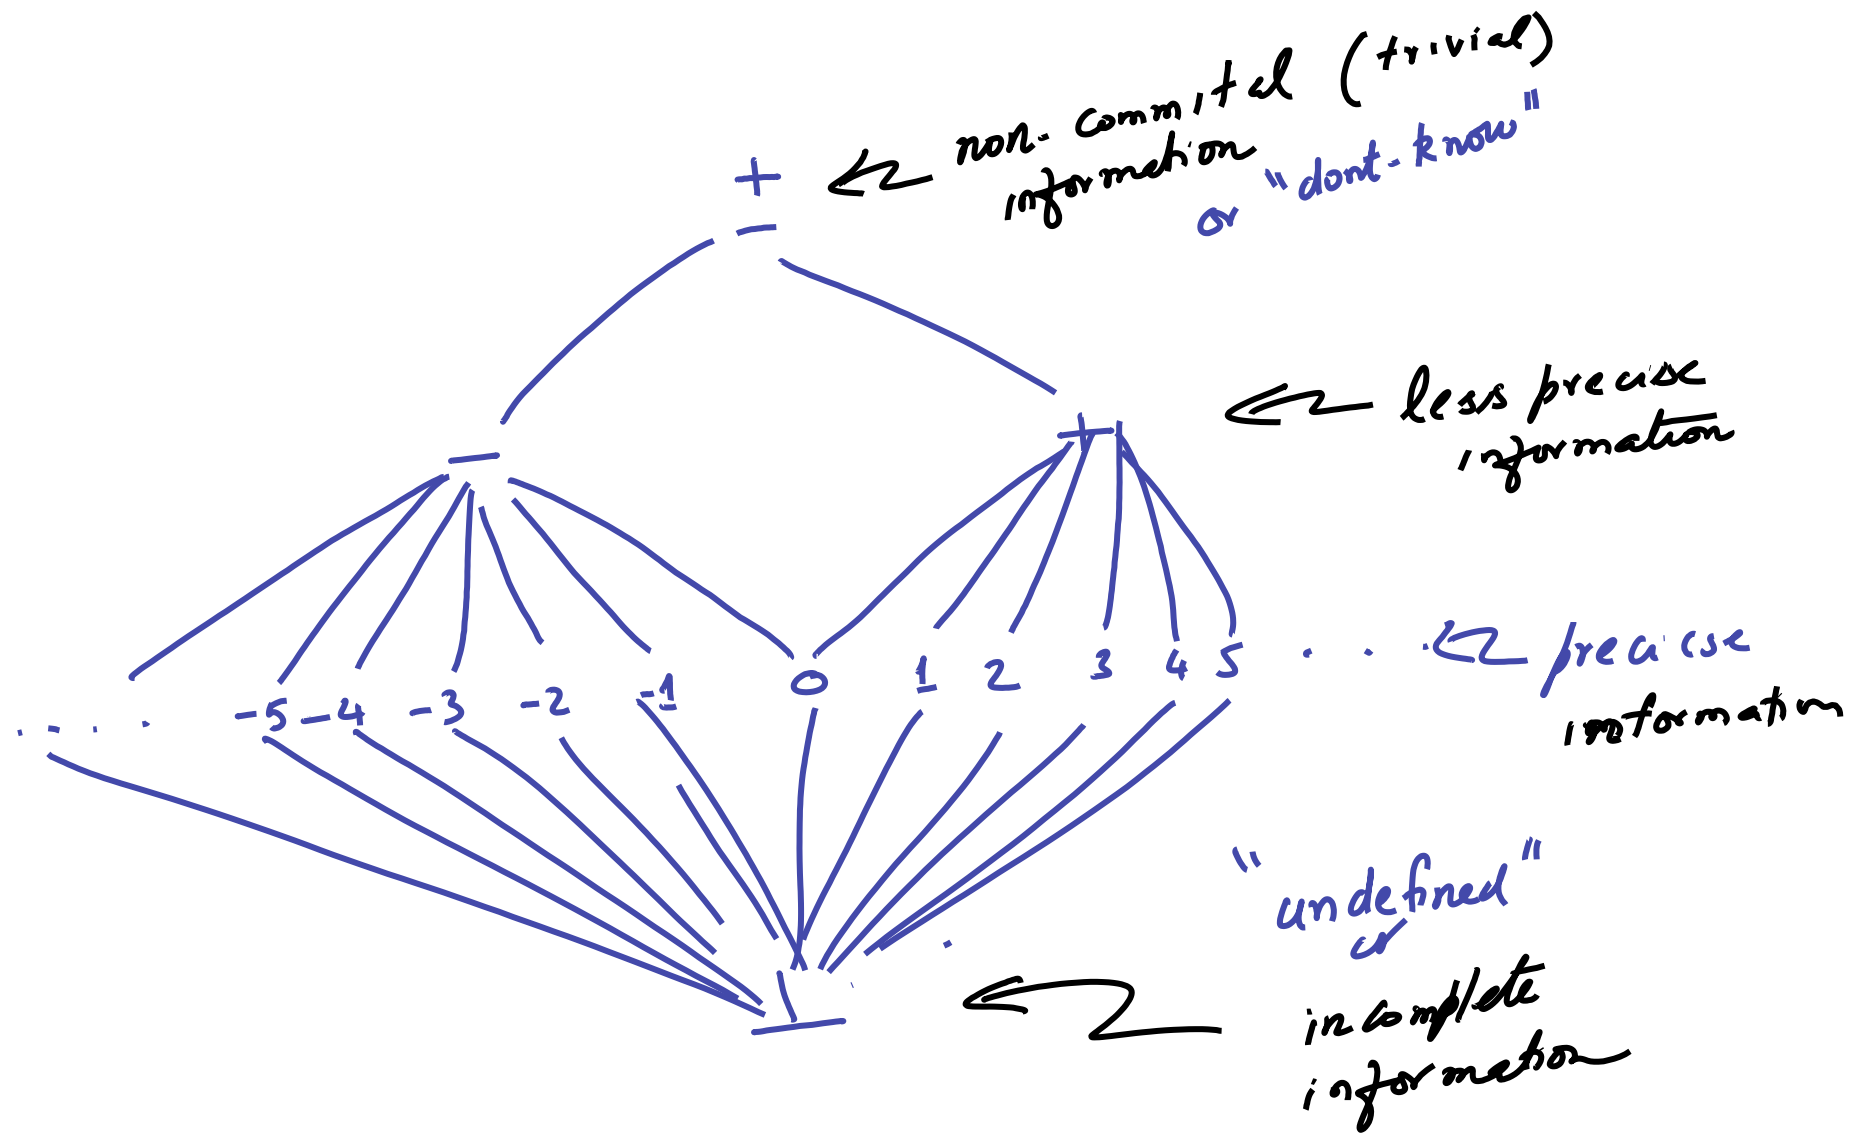 non-commital (trivial)
information
or "dont-know"
+
−
less precise
information
−
+
.... -5 -4 -3 -2 -1 0 1 2 3 4 5 ...
precise
information
"undefined"
or
incomplete
information
⊥